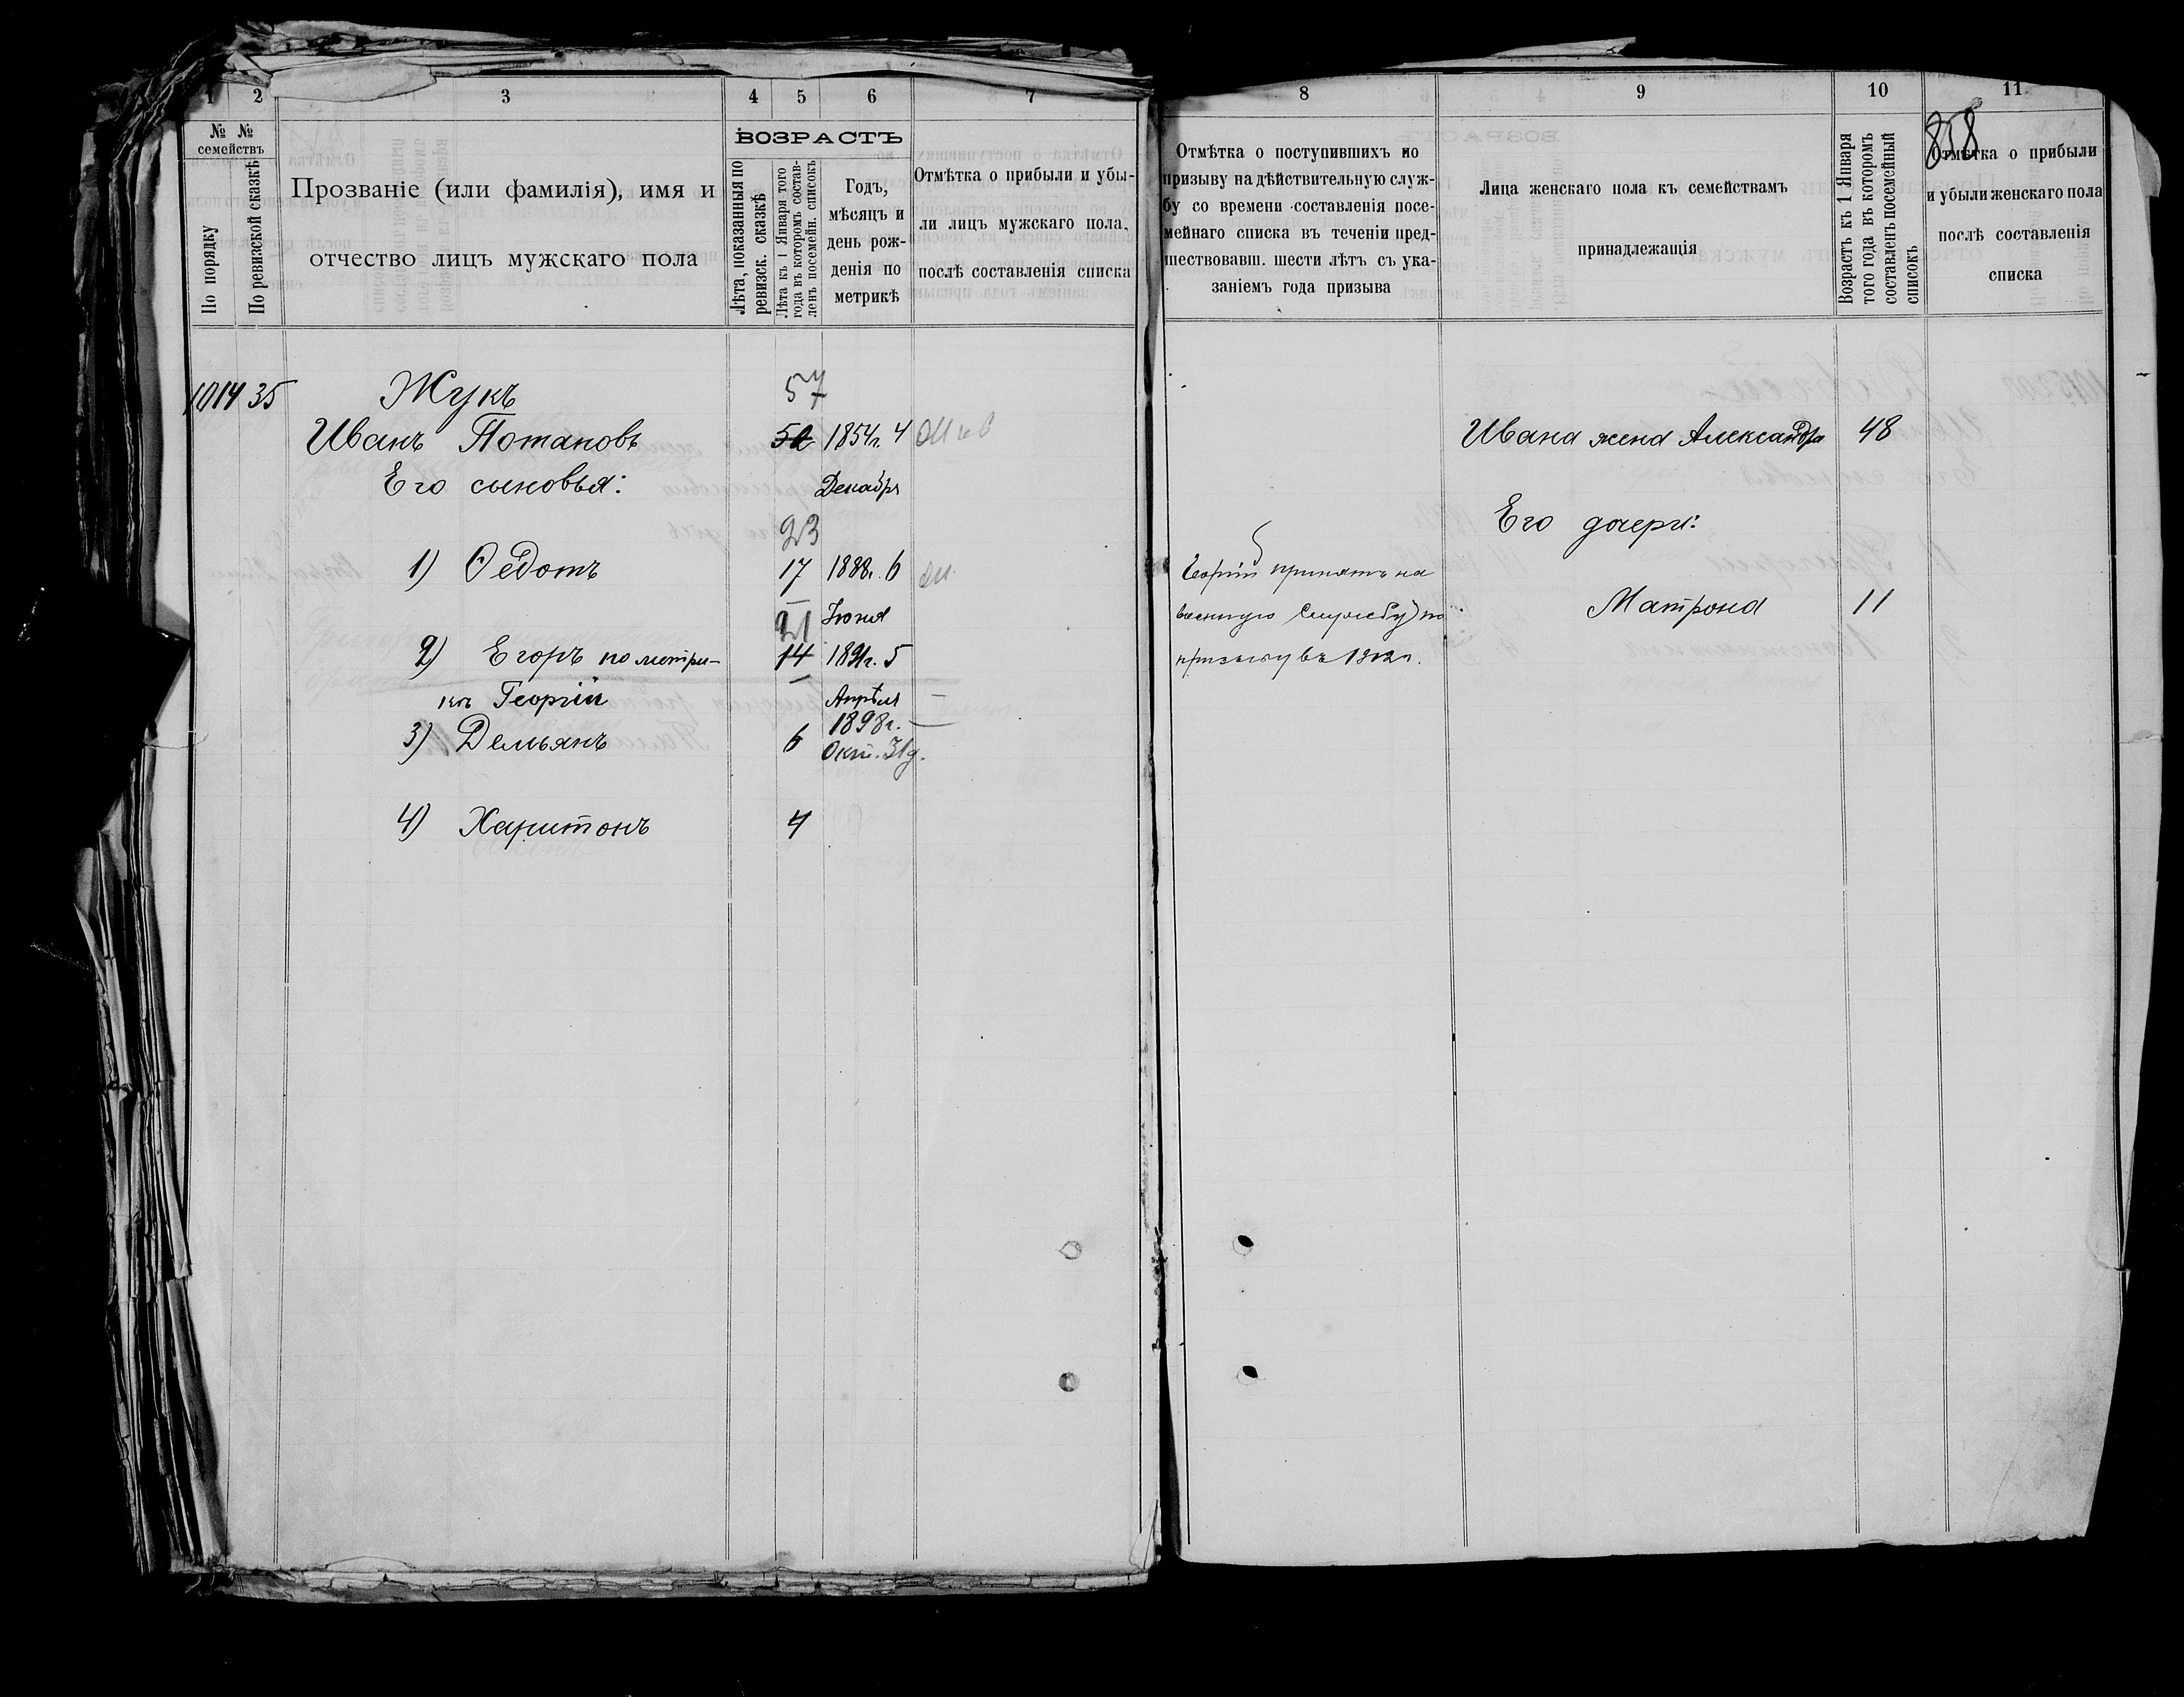 1 2 3 4 5 6 7
№ № семействъ
По порядку
По ревизской сказкѣ
Прозваніе (или фамилія), имя и
отчество лицъ мужскаго пола
ВОЗРАСТЪ
Лѣта, показанныя по
ревизск. сказкѣ
Лѣта къ 1 Января того
года въ которомъ состав-
ленъ посемейн. списокъ
Годъ,
мѣсяцъ и
день рож-
денія по
метрикѣ
Отмѣтка о прибыли и убы-
ли лицъ мужскаго пола,
послѣ составленія списка
1014 35 Жукъ 57
Иванъ Потаповъ 50 1854г. 4
Его сыновья: Декабря
23
1) Ѳедотъ 17 1888г. 6
21 Іюня
2) Егоръ по метри- 14 1891г. 5
кѣ Георгій Апрѣля
1898г.
3) Демьянъ 6 Окт. 31д.
4) Харитонъ 4
8 9 10 11
858
Отмѣтка о поступившихъ по
призыву на дѣйствительную служ-
бу со времени составленія посе-
мейнаго списка въ теченіи пред-
шествовавш. шести лѣтъ съ ука-
заніемъ года призыва
Лица женскаго пола къ семействамъ
принадлежащія
Возрастъ къ 1 Января
того года въ которомъ
составленъ посемейный
списокъ
Отмѣтка о прибыли
и убыли женскаго пола
послѣ составленія
списка
Ивана жена Александра 48
Его дочери:
Георгій принятъ на
военную службу по
призыву въ 1912г.
Матрона 11